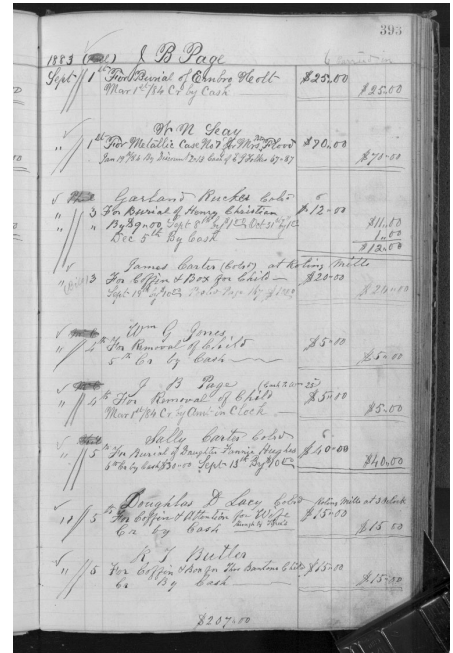 393
1883 J B Page
Sept 1st For Burial of Hott $25.00
Mar 1st/84 Cr by Cash $25.00
N Seay
" 1st For Metallic Case No 7 for Mrs Flood $70.00
$70.00
Garland Rucker Cold
" 3 For Burial of Henry Christian $12.00
" By $9.00 Sept 8th By $1 Oct 31st by 1 $11.00
Dec 5th By Cash 1.00
$12.00
James Carter (Cold) at Roling Mills
" 3 For Coffin & Box for Child $20.00
Sept 18th by 10 $20.00
Wm G Jones
" 4th For Removal of Child $5.00
5th Cr by Cash $5.00
J B Page
" 4th For Removal of Child $5.00
Mar 1st/84 Cr by in Clock $5.00
Sally Carter Cold
" 5th For Burial of Daughter Fannie Hughes $40.00
Cr by Cash $30.00 Sept 13th By $10 $40.00
Doughlas D Lacy Cold Roling Mills at 3 Oclock
" 5th For Coffin & Attention for Wife $15.00
Cr by Cash $15.00
T Butler
" 5 For Coffin & Box for Child $15.00
Cr By Cash $15.00
$207.00